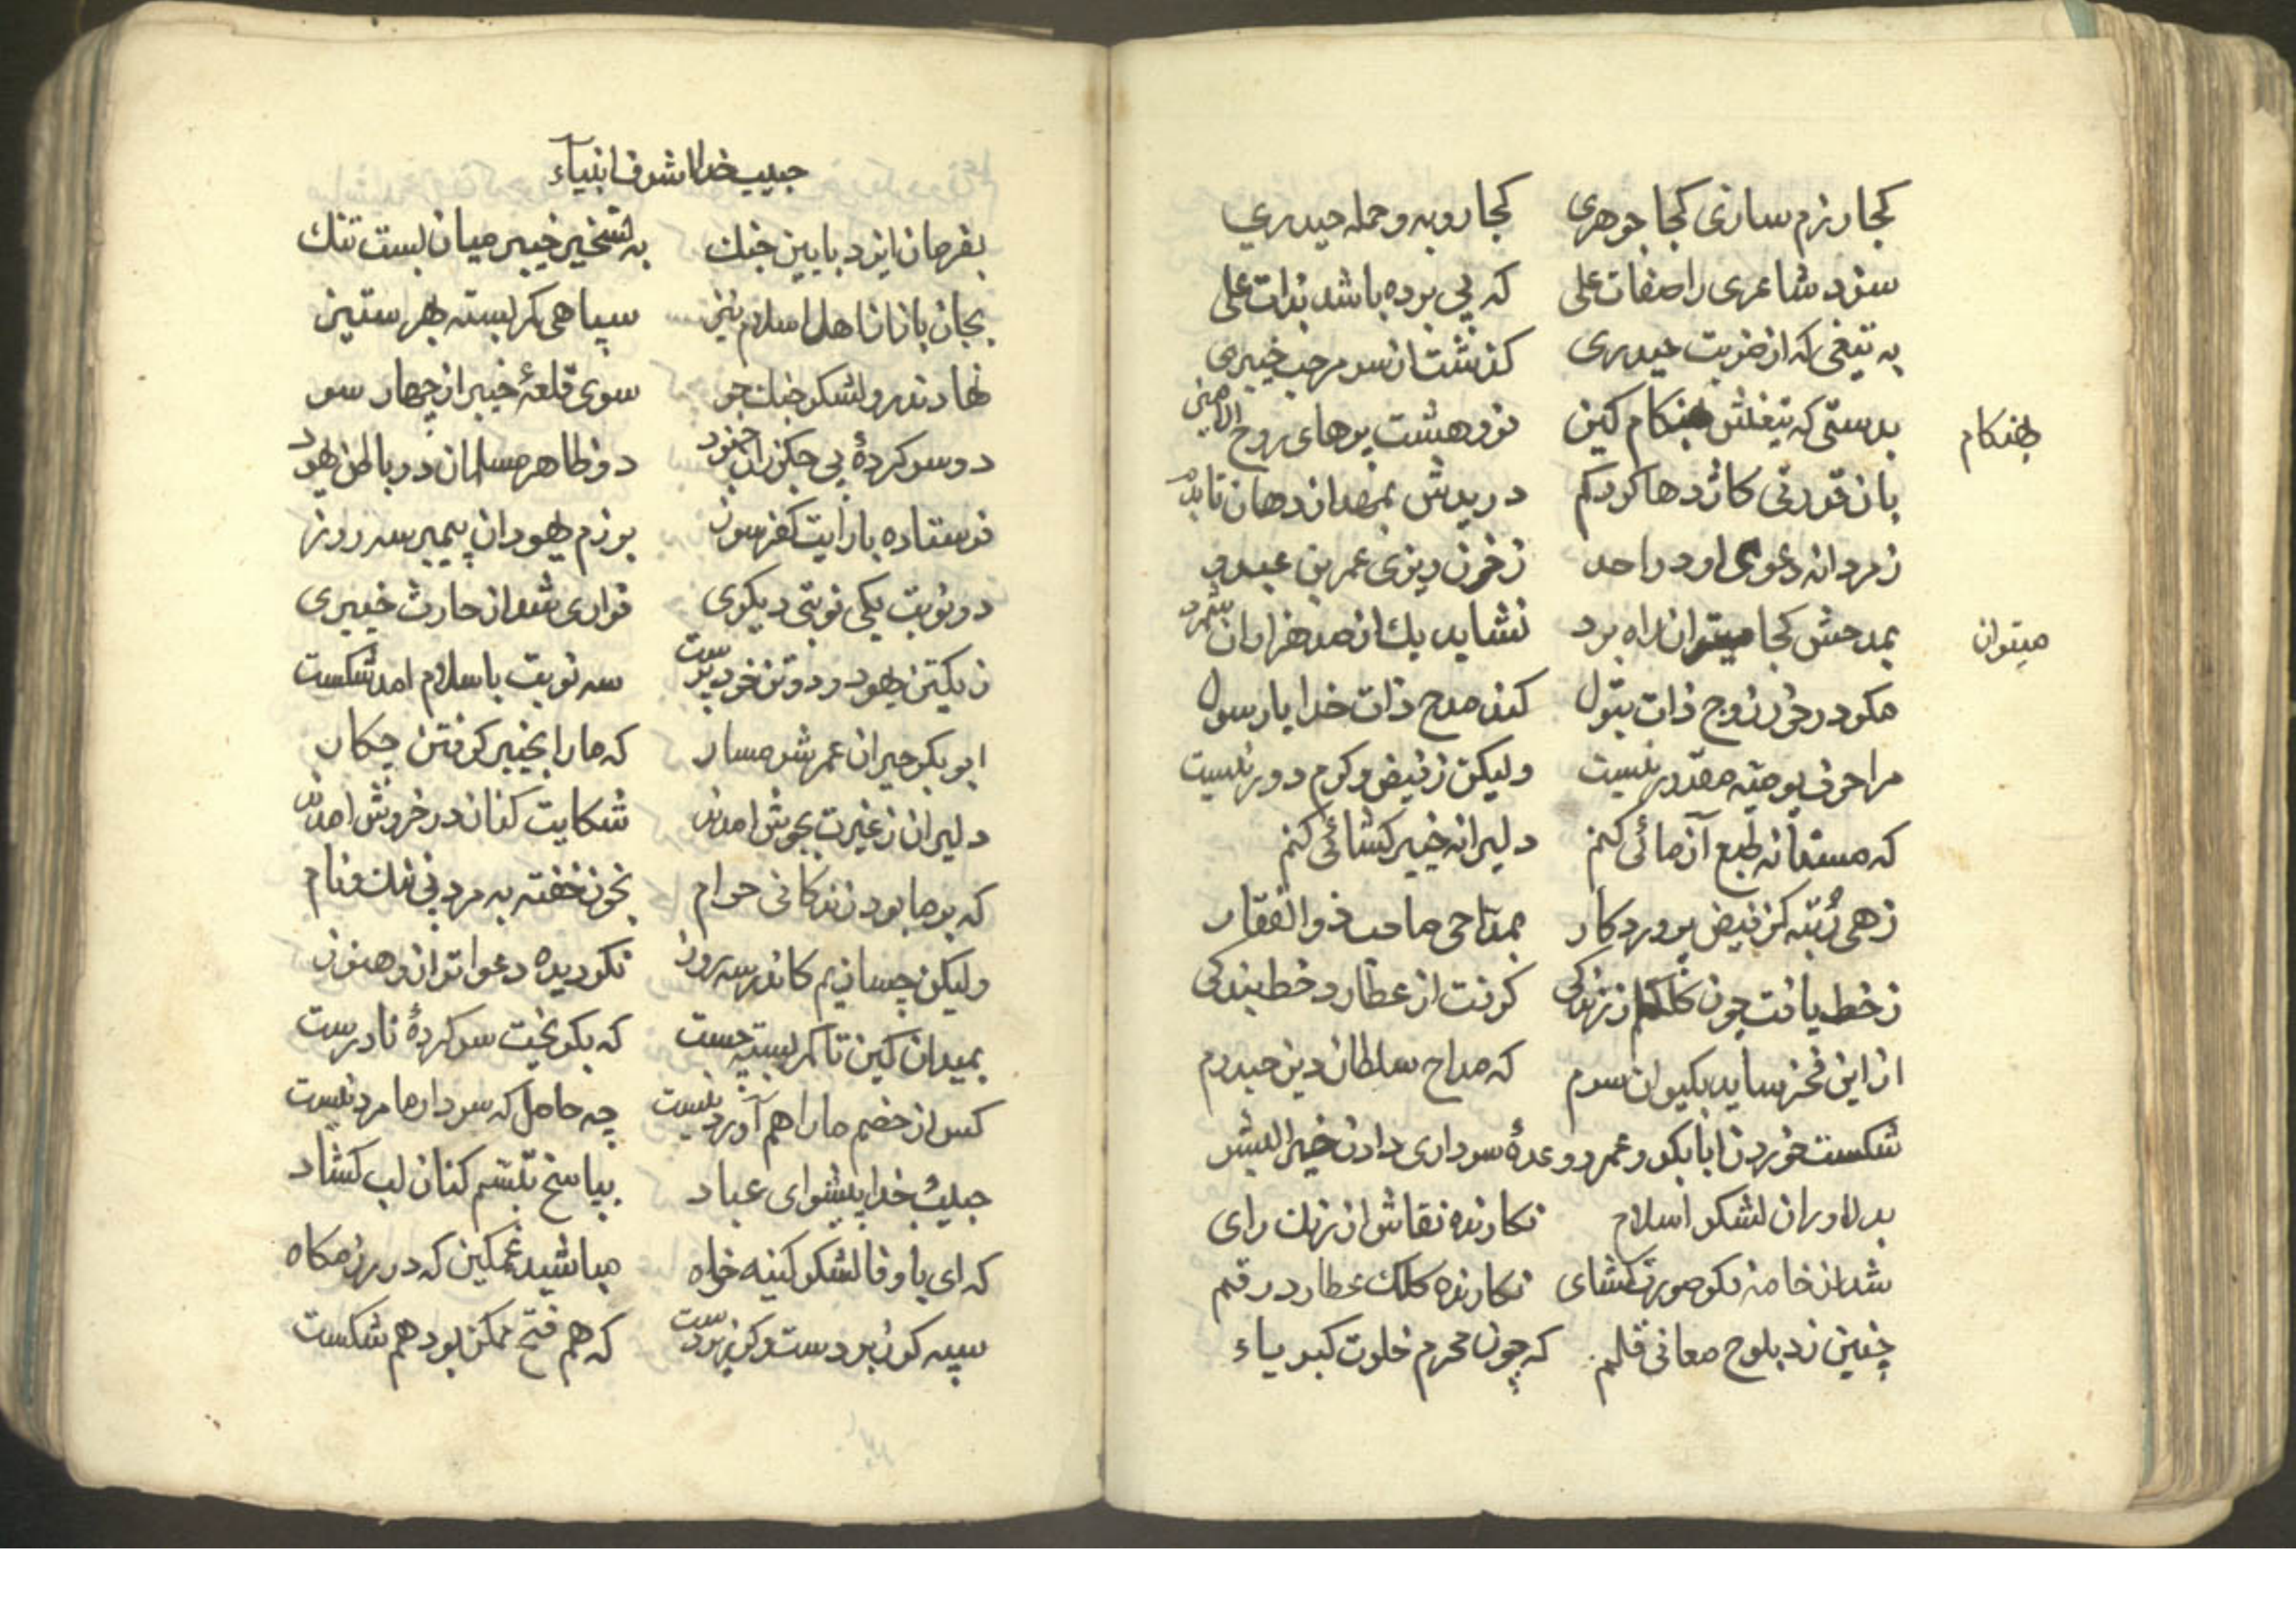 کجا رزم سازی کجا جوهری کجا روبه و حمله حیدری
سزد شاعری را صفات علی که پی برده باشد بذات علی
به تیغی که از ضربت حیدری گذشت از سر مرحب خیبری
بدستی که تیغش هنکام کین فرو هشت پرهای روح الامین
بهنکام
بان قدرتی کاژدها کردکم دریدش بمهد از دهان تا بدم
ز مردانه دعوی او در احد ز خون ریزی عمر بن عبدود
بمدحش کجا میتوان راه برد نشاید یك از صد هزاران شمرد
میتوان
مکو درخور زوج ذات بتول کند مدح ذات خدا یا رسول
مرا حرفی بو صیته مقدور نیست ولیکن ز فیض و کرم دور نیست
که مستانه طبع آزمائی کنم دلیرانه خیبر کشائی کنم
زهی رُتبه کز فیض پروردکار بمداحی صاحب ذوالفقار
ز خط یافت چون کلکم از زندکی کرفت از عطارد خط بندکی
از این فخر ساید بکیوان سرم که مداح سلطان دین حیدرم
شکست خوردن ابابکر و عمر و وعدهٔ سرداری دادن خیر البشر
بدلاوران لشکر اسلام نکارنده نقاش ارژنك رای
شد از خامه نکو صورت کشای نکارنده کلك عطارد رقم
چنین زد بلوح معانی قلم که چون محرم خلوت کبریاء
حبیب خدا اشرف انبیآء
بفرمان ایزد بایین جنك به تسخیر خیبر میان بست تنك
بجان بازان اهل اسلام نیز سپاهی کمر بسته بهر ستیز
نهادند رو لشکر جنك جو سوی قلعهٔ خیبر از چهار سو
دو سر کردهٔ بی جکر زان جنود دو ظاهر مسلمان دو باطن یهود
فرستاده با رایت کفر سوز برزم یهودان پیمبر سه روز
دو نوبت یکی نوبتی دیکری فراری شد از حارث خیبری
ز یکتن یهود و دو تن خود پرست سه نوبت باسلام امد شکست
ابوبکر حیران عمر شرمسار که ما را بخیبر کرفتن چکار
دلیران ز غیرت بجوش امدند شکایت کنان در خروش امدند
که بر ما بود زندکانی حرام بخون خفته به مرد بی ننك و نام
ولیکن چسانیم کاندر سه روز نکردیده دعوا توان و هنوز
بمیدان کین تا کمر بسته چست که بکریخت سرکردهٔ نادرست
کس از خصم ما را هم آورد نیست چه حاصل که سردار ما مرد نیست
حبیب خدا پیشوای عباد بپاسخ تبسّم کنان لب کشاد
که ای با وفا لشکر کینه خواه مباشید غمکین که در رزمکاه
سپه کر زبردست و کر زیردست که هم فتح ممکن بود هم شکست